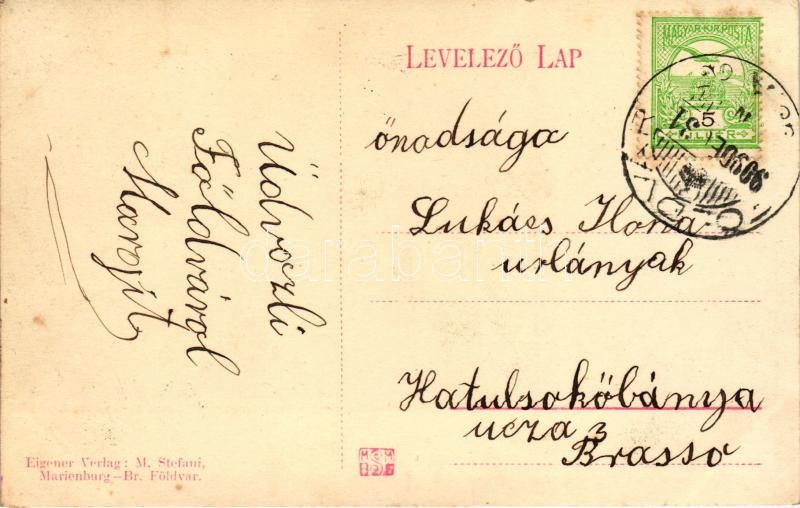 LEVELEZŐ LAP
MAGYAR KIR. POSTA
5
FILLÉR
önadsága
Lukács Ilona
urlányak
Hatulsokőbánya
ucza 3
Brasso
Üdvözli
Földváról
Margit
Eigener Verlag: M. Stefani,
Marienburg—Br. Földvár.
darabanth